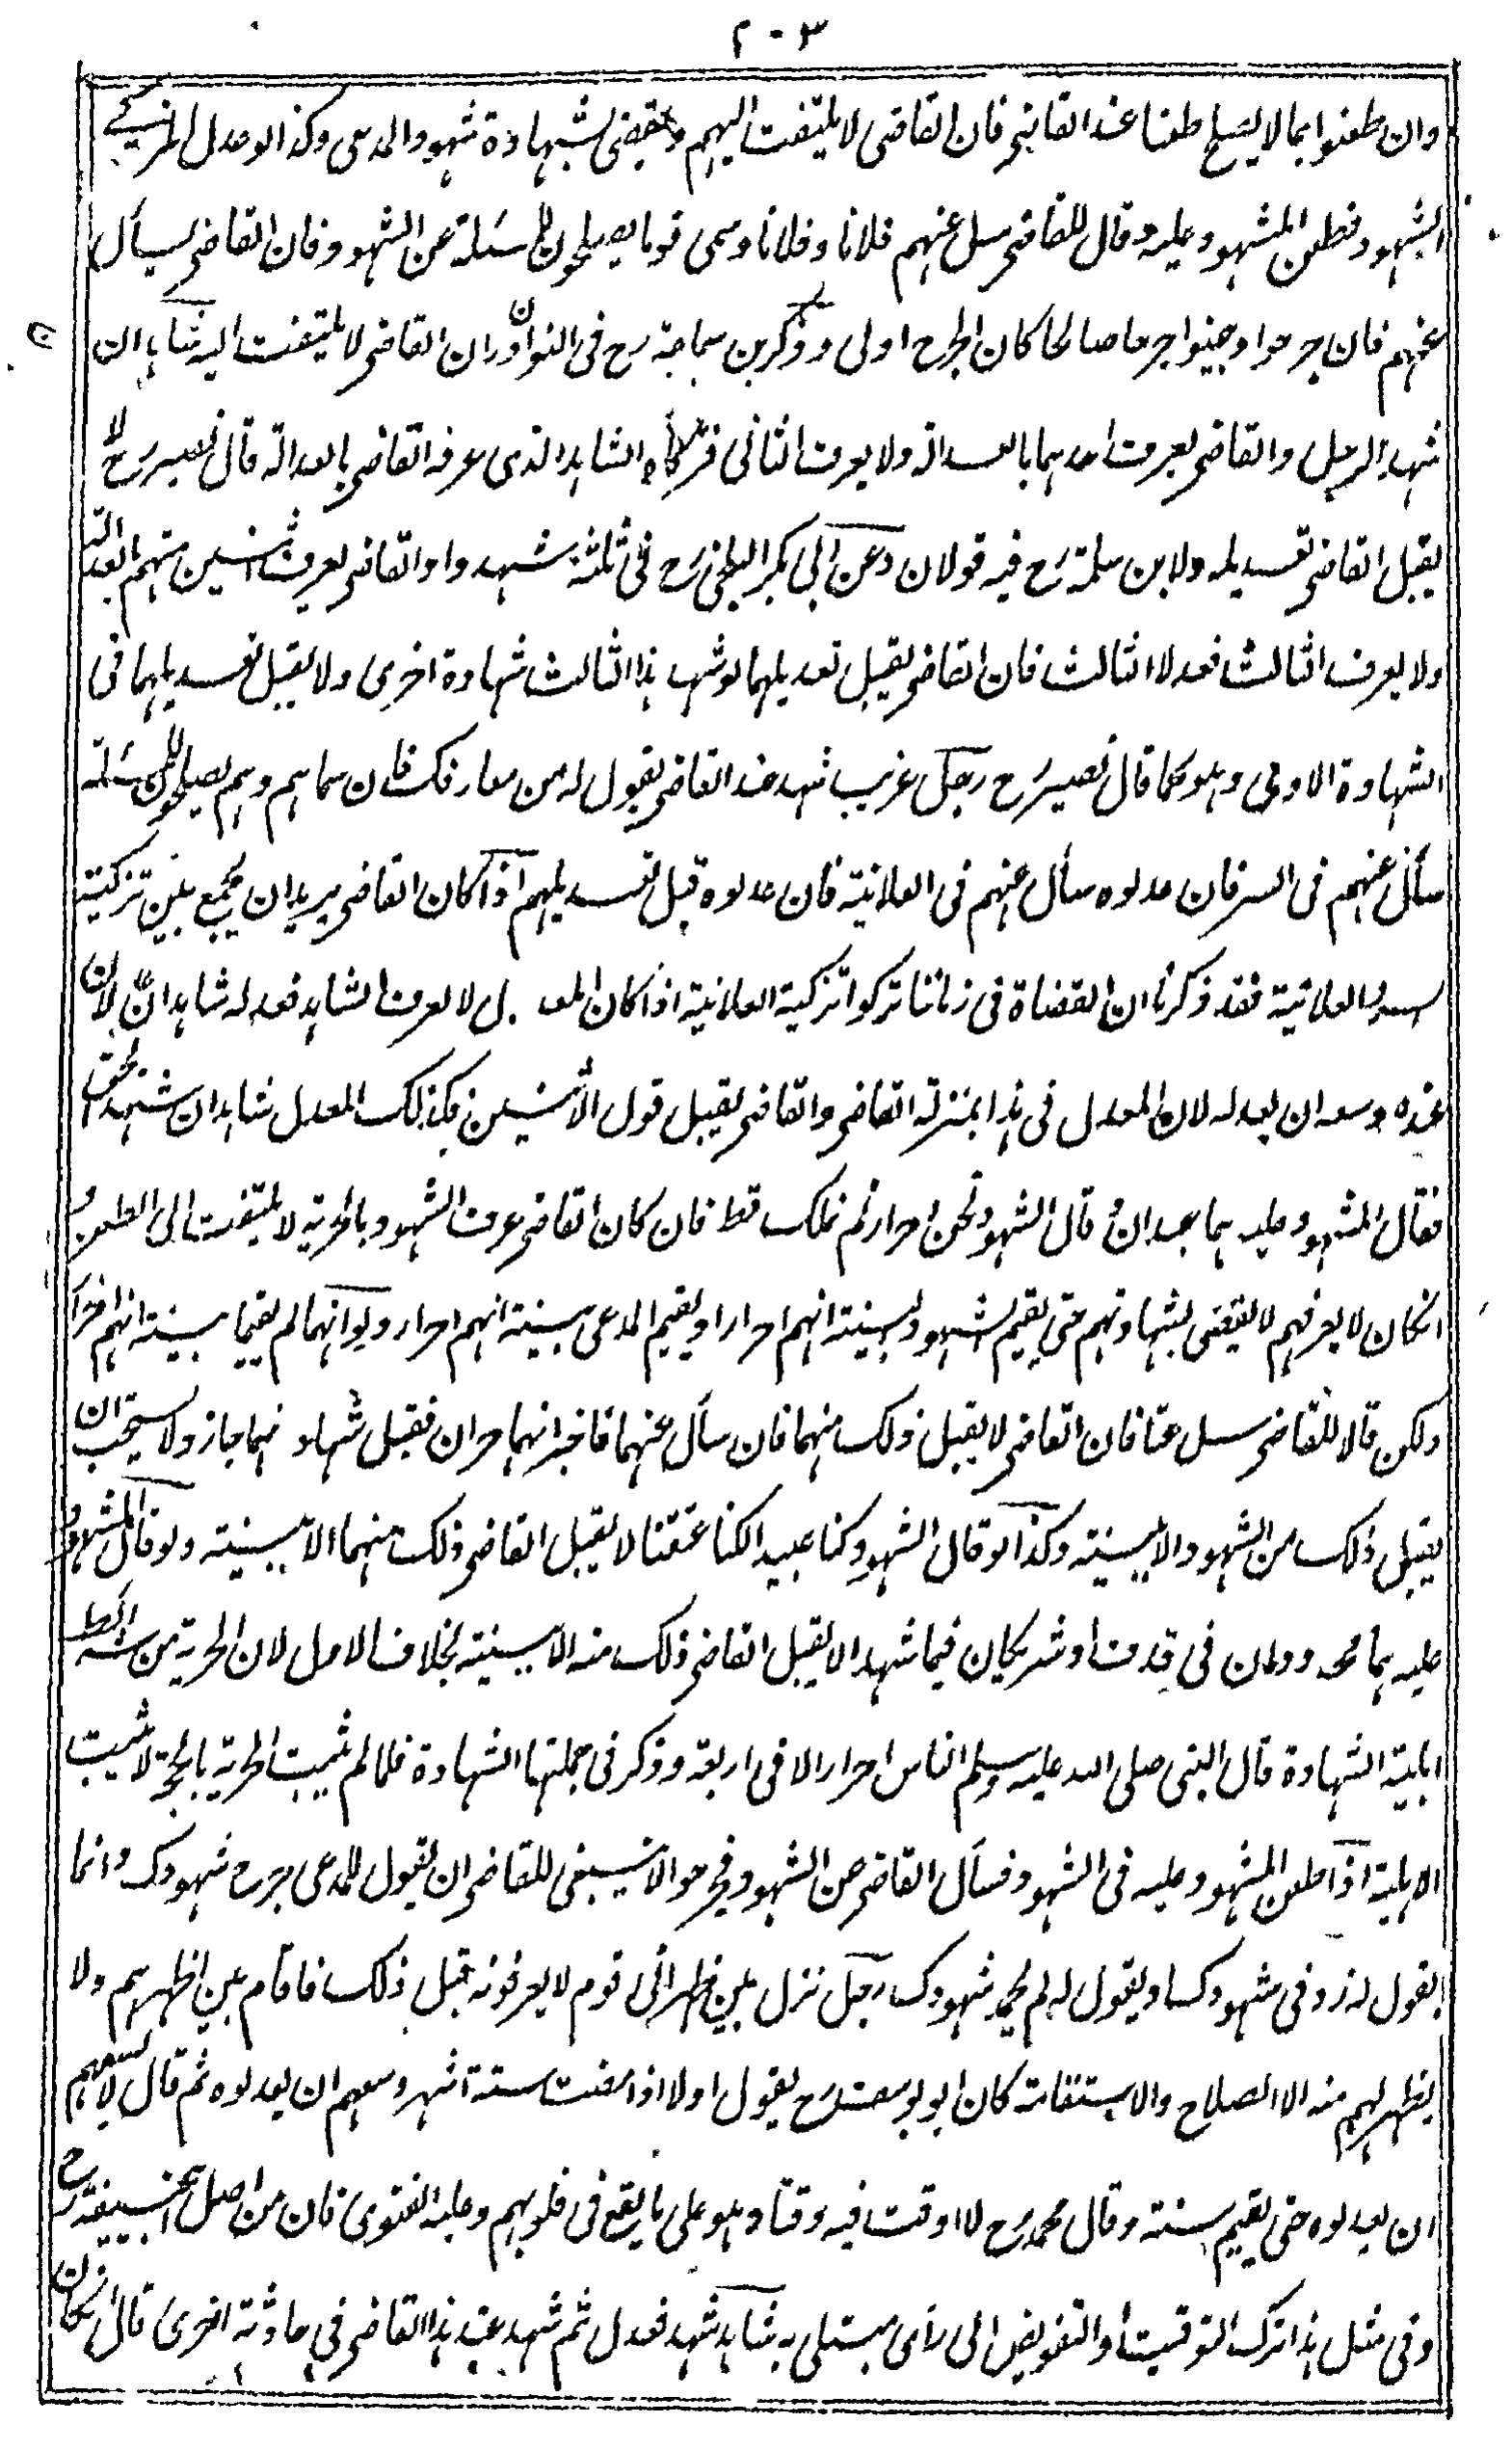 ٢٠٣
وان طعنوا بما لا يصلح طعنا عند القاضي فان القاضي لا يلتفت اليهم ويقضى بشهادة شهود المدعى وكذا لو عدل المزكى
الشهود فطعن المشهود عليه وقال للقاضي سل عنهم فلانا وفلانا وسمى قوما يصلحون للمسئلة عن الشهود فان القاضي يسأل
عنهم فان جرحوا وبينوا جرحا صالحا كان الجرح اولى وذكر بن سماعة رح في النوادر ان القاضي لا يلتفت اليه شاهدان
شهدا لرجل والقاضي يعرف احدهما بالعدالة ولا يعرف الثاني فزكاه الشاهد الذى عرفه القاضي بالعدالة قال نصير رح لا
يقبل القاضي تعديله ولابن سلمة رح فيه قولان وعن ابي بكر البلخي رح في ثلثة شهدوا والقاضي يعرف اثنين منهم بالعدالة
ولا يعرف الثالث فعدلا الثالث فان القاضي يقبل تعديلهما لو شهد هذا الثالث شهادة اخرى ولا يقبل تعديلهما في
الشهادة الاولى وهو كما قال نصير رح رجل غريب شهد عند القاضي يقول له من معارفك فان سماهم وهم يصلحون للمسئلة
سأل عنهم في السر فان عدلوه سأل عنهم في العلانية فان عدلوه قبل تعديلهم اذا كان القاضي يريد ان يجمع بين تزكية
السر والعلانية فقد ذكرنا ان القضاة في زماننا تركوا تزكية العلانية اذا كان المعدل لا يعرف الشاهد فعدله شاهدان عدلان
عنده وسعه ان يعدله لان المعدل في هذا بمنزلة القاضي والقاضي يقبل قول الاثنين فكذلك المعدل شاهدان شهدا بحق
فقال المشهود عليه هما عبدان وقال الشهود نحن احرار لم نملك قط فان كان القاضي عرف الشهود بالحرية لا يلتفت الى الطعن و
انكان لا يعرفهم لا يقضى بشهادتهم حتى يقيم الشهود بينة انهم احرار او يقيم المدعى بينة انهم احرار ولو انهما لم يقيما بينة انهم احرار
ولكن قالا للقاضي سل عنا فان القاضي لا يقبل ذلك منهما فان سأل عنهما فاخبر انهما حران فقبل شهادتهما جاز ولا يستحب ان
يقبل ذلك من الشهود الا ببينة وكذا لو قال الشهود كنا عبيدا لكنا عتقنا لا يقبل القاضي ذلك منهما الا ببينة ولو قال المشهود
عليه هما محدودان في قذف او شريكان فيما شهدا لا يقبل القاضي ذلك منه الا ببينة بخلاف الاول لان الحرية من شرائط
اهلية الشهادة قال النبي صلى الله عليه وسلم الناس احرار الا في اربعة وذكر في جملتها الشهادة فلما لم يثبت الحرية بالحجة لا يثبت
الاهلية اذا طعن المشهود عليه في الشهود فسأل القاضي عن الشهود فجرحوا لا ينبغى للقاضي ان يقول للمدعى جرح شهودك وانما
يقول له زد في شهودك او يقول له لم يحمد شهودك رجل نزل بين ظهراني قوم لا يعرفونه قبل ذلك فاقام بين اظهرهم ولا
يظهر لهم منه الا الصلاح والاستقامة كان ابو يوسف رح يقول اولا اذا مضت ستة اشهر وسعهم ان يعدلوه ثم قال لا يسعهم
ان يعدلوه حتى يقيم سنة وقال محمد رح لا اوقت فيه وقتا وهو على ما يقع في قلوبهم وعليه الفتوى فان من اصل ابي حنيفة رح
وفي مثل هذا ترك التوقيت والتفويض الى رأى مبتلى به شاهد شهد فعدل ثم شهد عند هذا القاضي في حادثة اخرى قال ان كان